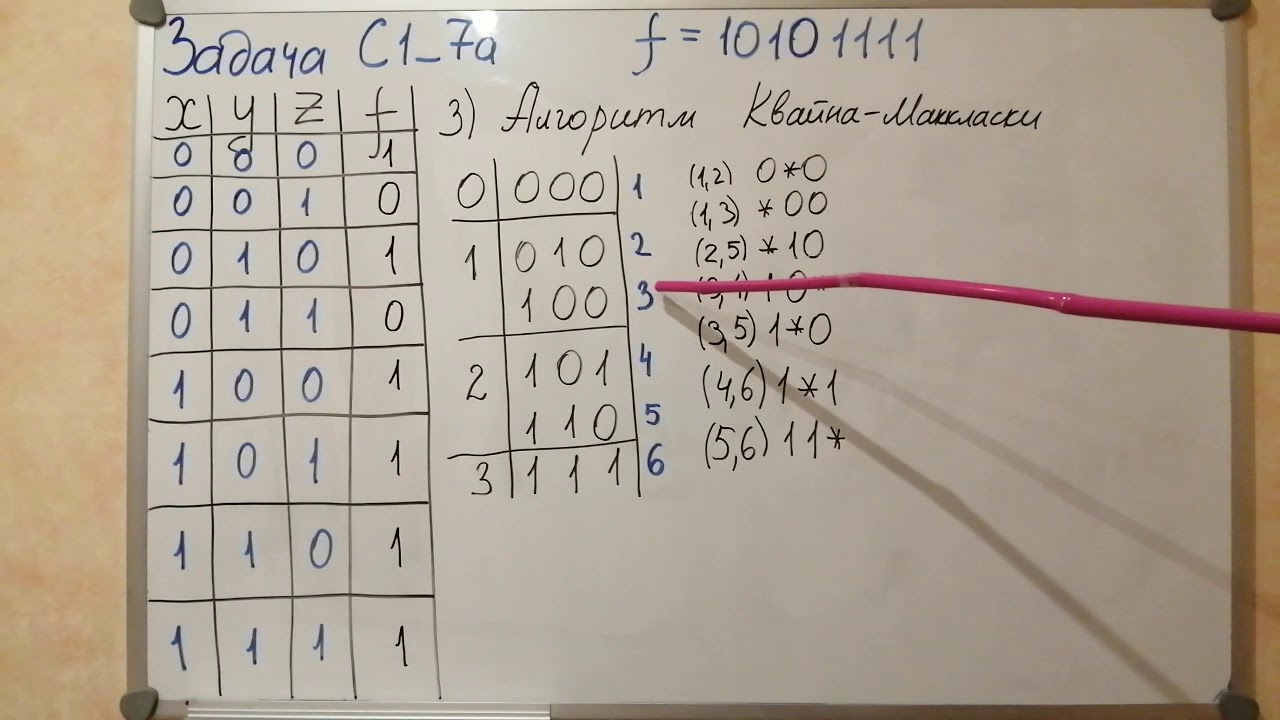 Задача С1_7а f = 10101111
x y z f
0 0 0 1
0 0 1 0
0 1 0 1
0 1 1 0
1 0 0 1
1 0 1 1
1 1 0 1
1 1 1 1
3) Алгоритм Квайна-Маккласки
0 000 1
1 010 2
100 3
2 101 4
110 5
3 111 6
(1,2) 0*0
(1,3) *00
(2,5) *10
(3,5) 1*0
(4,6) 1*1
(5,6) 11*